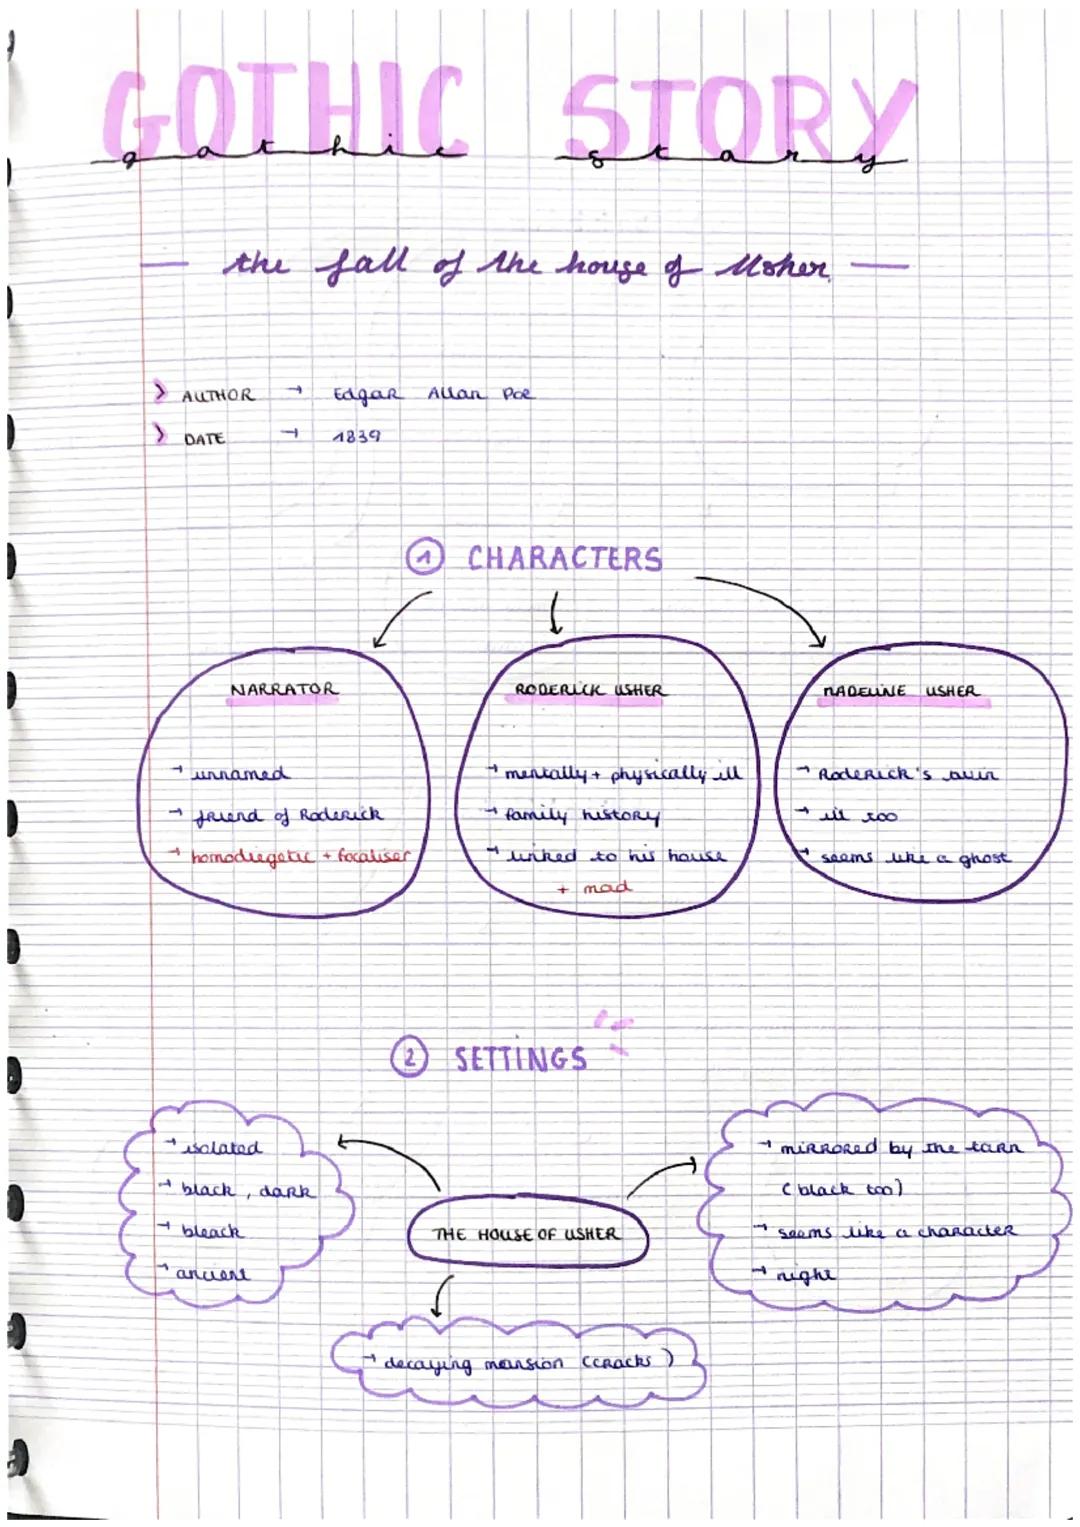 GOTHIC STORY
gothic story
— the fall of the house of Usher —
> AUTHOR → Edgar Allan Poe
> DATE → 1839
① CHARACTERS
NARRATOR
→ unnamed
→ friend of Roderick
→ homodiegetic + focaliser
RODERICK USHER
→ mentally + physically ill
→ family history
→ linked to his house
+ mad
MADELINE USHER
→ Roderick's twin
→ ill too
→ seems like a ghost
② SETTINGS
→ isolated
→ black, dark
→ bleack
→ ancient
THE HOUSE OF USHER
→ mirrored by the tarn
(black too)
→ seems like a character
→ night
→ decaying mansion (cracks)